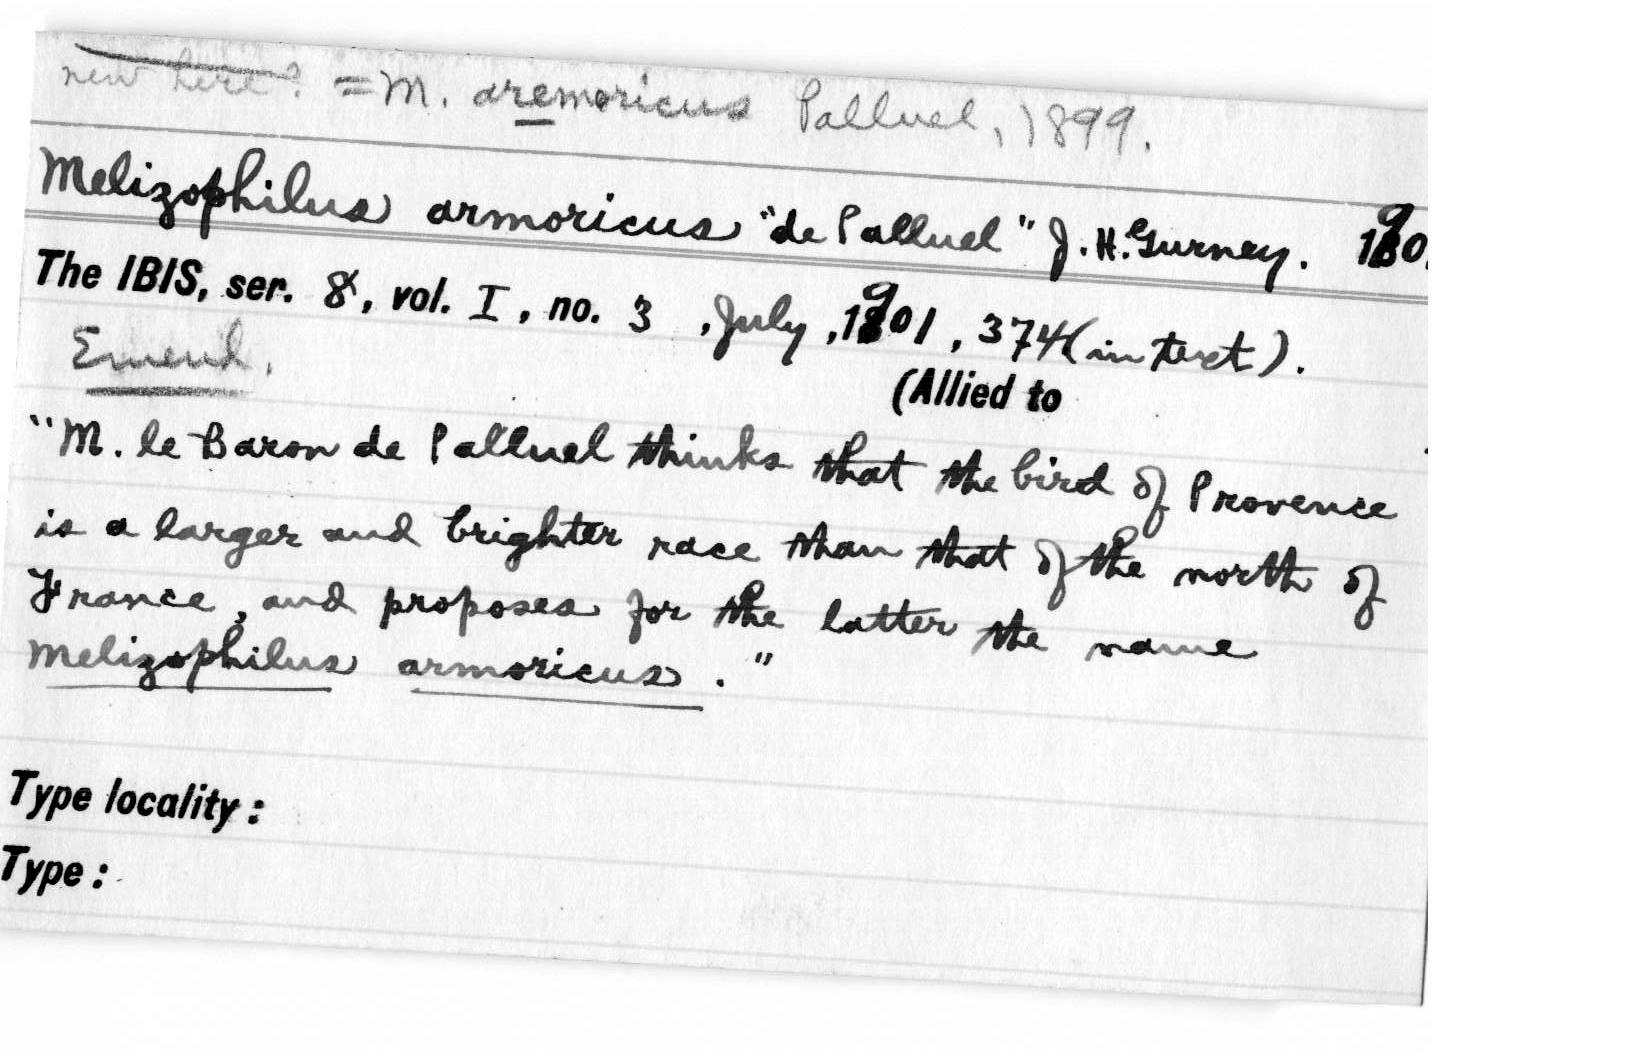 new here? = M. aremoricus Palluel, 1899.
Melizophilus armoricus "de Palluel" J. H. Gurney. 190
The IBIS, ser. 8, vol. I, no. 3, July, 1901, 374 (in text).
Emend.
(Allied to
"M. le Baron de Palluel thinks that the bird of Provence
is a larger and brighter race than that of the north of
France, and proposes for the latter the name
Melizophilus armoricus."
Type locality:
Type: